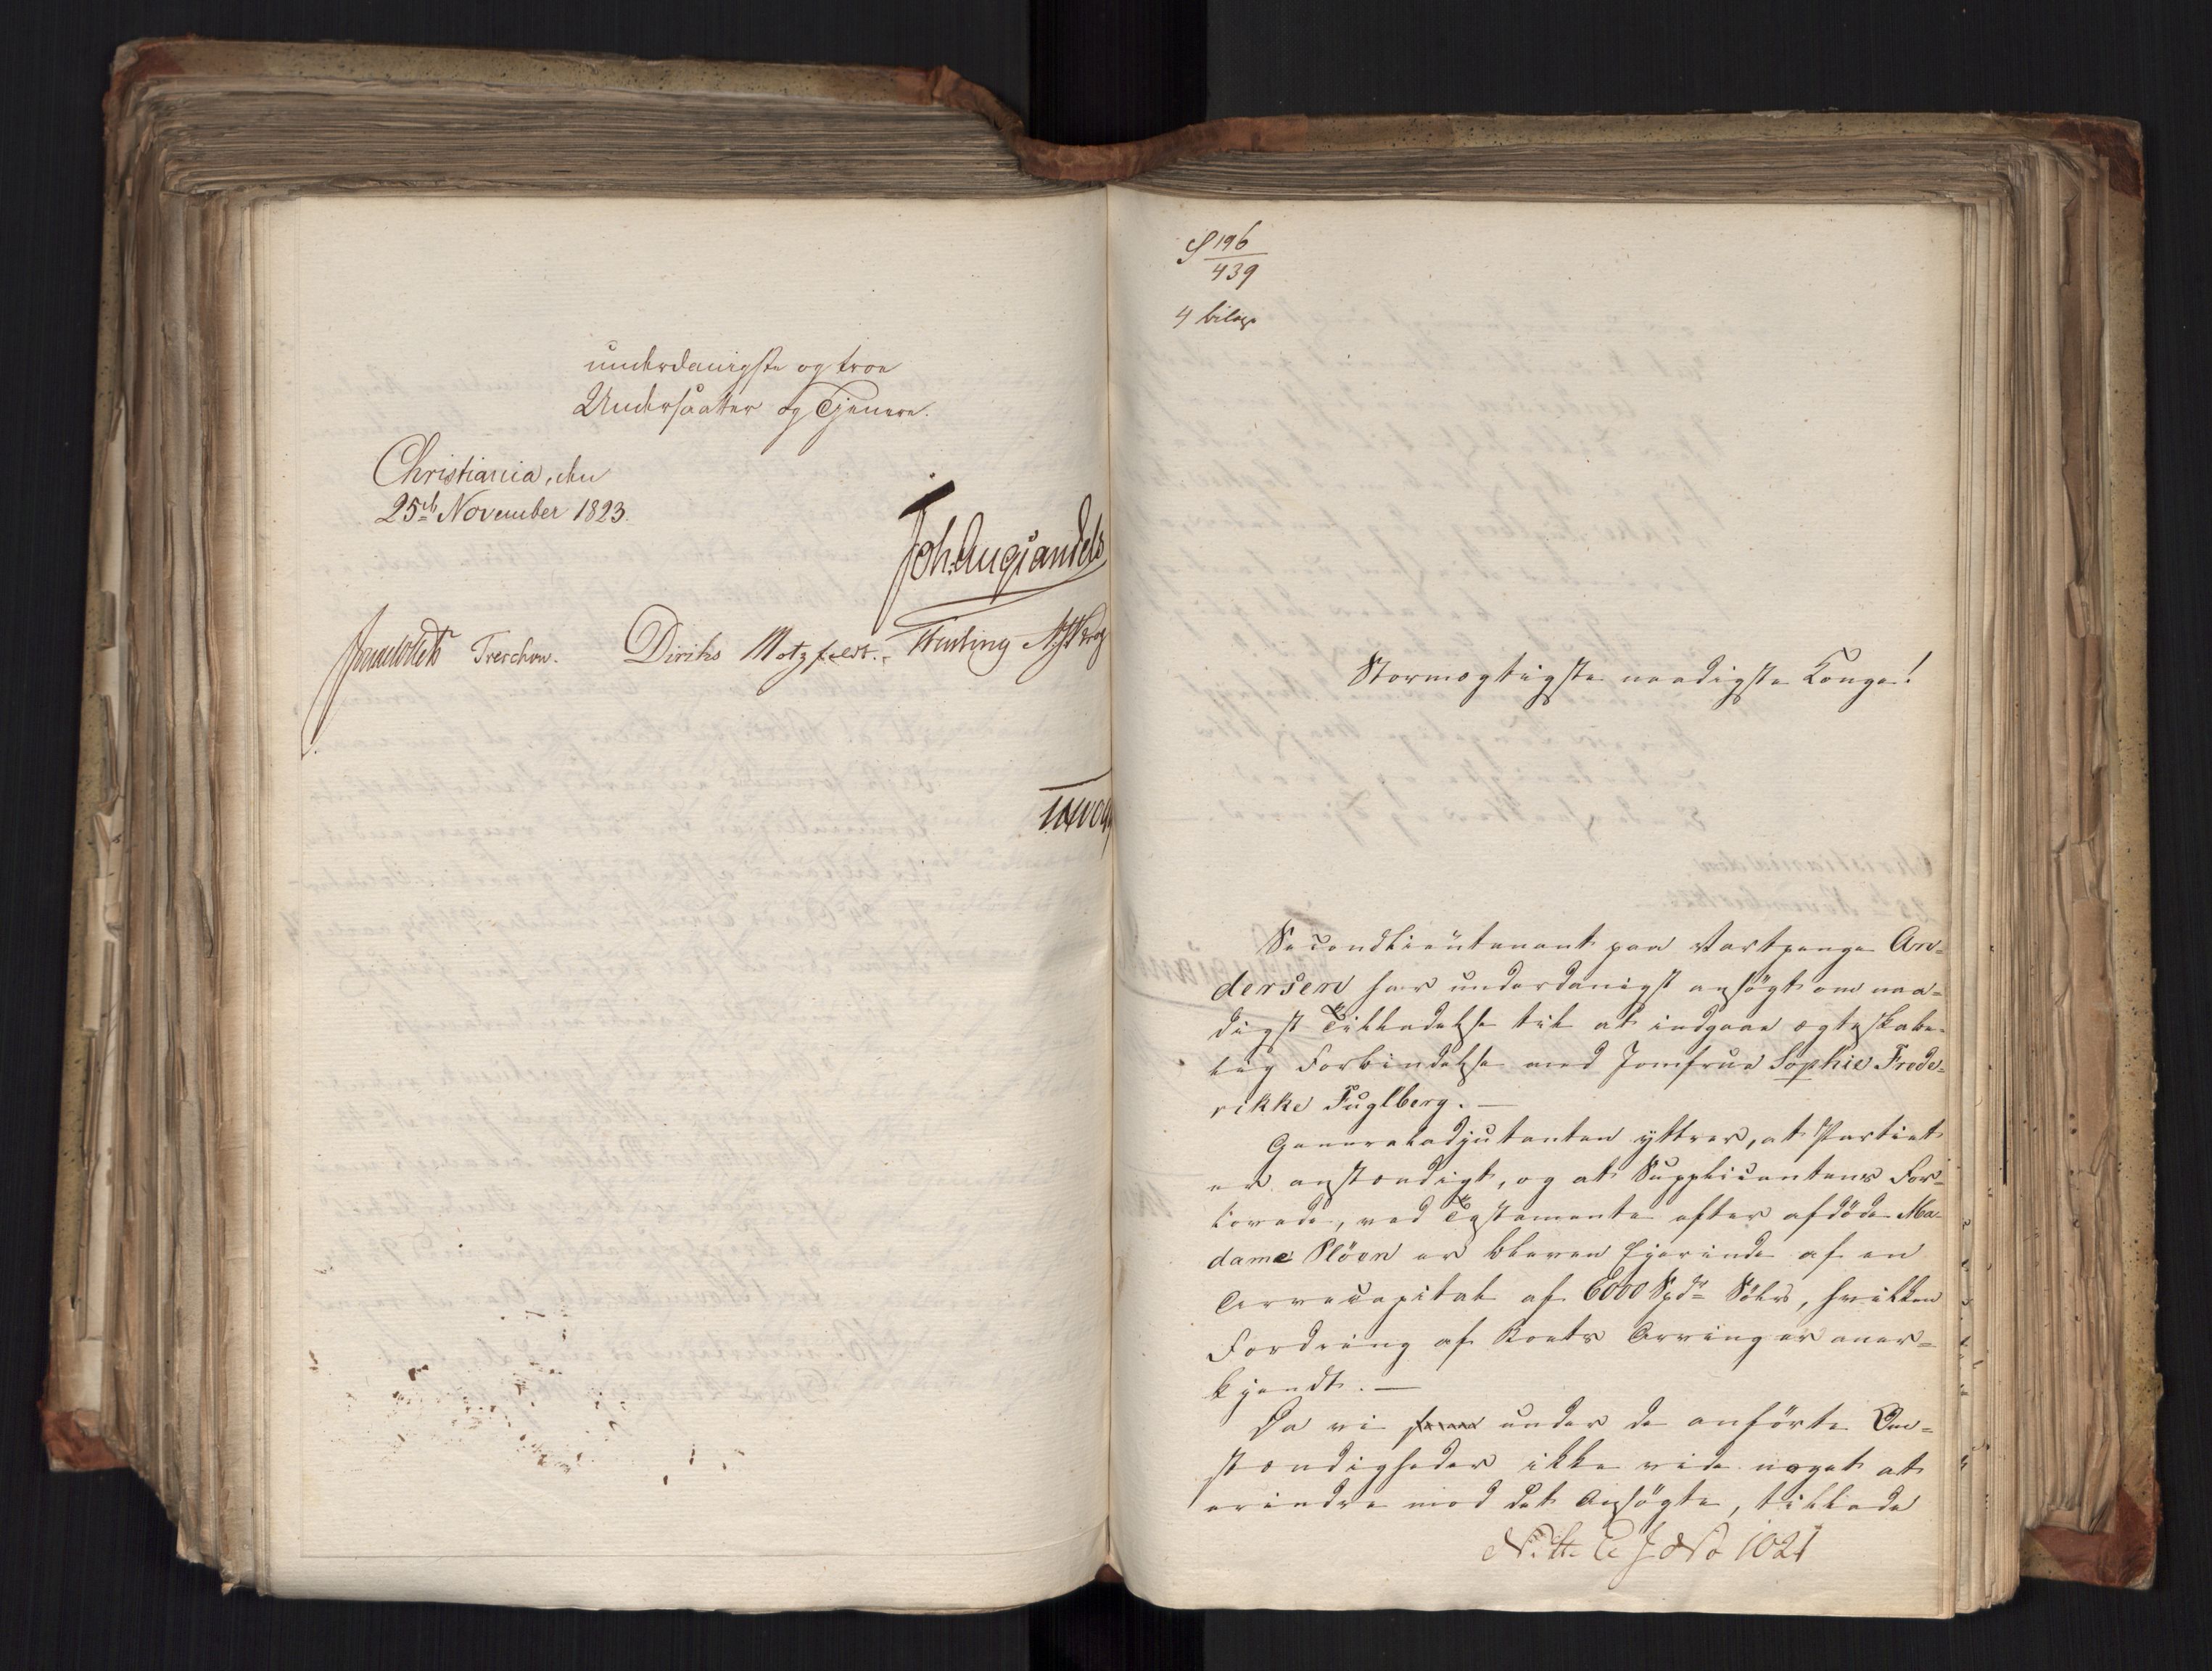 underdanigste og troe
Undersaatter og Tjenere.
Christiania, den
25de November 1823.
Joh. Aug Sandels
Sommerhielm Treschow. Diriks Motzfeldt. Fasting N. J. Krog
S 196
439
4 bilag
Stormægtigste naadigste Konge!
Secondlieutenant paa Vartpenge An-
dersen har underdanigst ansøgt om naa-
digst Tilladelse til at indgaae ægteskabe-
lig Forbindelse med Jomfrue Sophie Frede-
rikke Fuglberg. —
Generaladjutanten yttrer, at Partiet
er anstændigt, og at Supplicantens For-
lovede, ved Testamente efter afdøde Ma-
dame Pløen er bleven Ejerinde af en
Arvecapital af 6000 Spdr Sølv, hvilken
Fordring af Boets Arvinger aner-
kjendt. —
Da vi under de anførte Om-
stændigheder ikke vide noget at
erindre mod det Ansøgte, tillade
No 1021